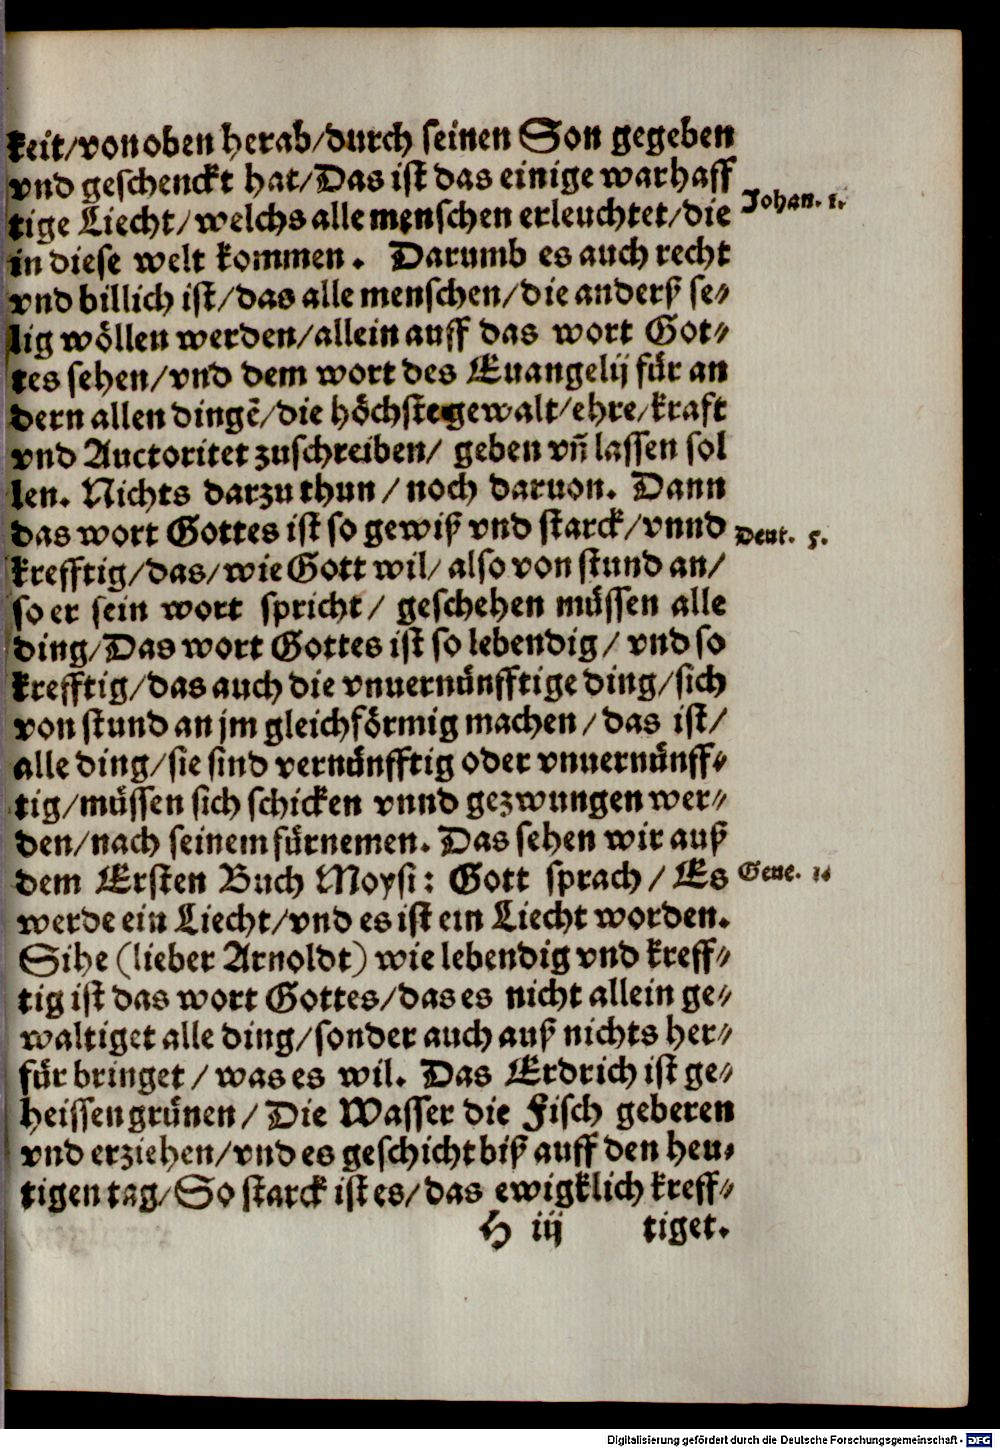 keit/von oben herab/durch seinen Son gegeben
vnd geschenckt hat/Das ist das einige warhaff
tige Liecht/welchs alle menschen erleuchtet/die
Johan. 1.
in diese welt kommen. Darumb es auch recht
vnd billich ist/das alle menschen/die anderß se⸗
lig wöllen werden/allein auff das wort Got⸗
tes sehen/vnd dem wort des Euangelij für an
dern allen dingẽ/die höchste gewalt/ehre/kraft
vnd Auctoritet zuschreiben/ geben vñ lassen sol
len. Nichts darzu thun/noch daruon. Dann
das wort Gottes ist so gewiß vnd starck/vnnd
Deut. 5.
krefftig/das/wie Gott wil/also von stund an/
so er sein wort spricht/ geschehen müssen alle
ding/Das wort Gottes ist so lebendig/vnd so
krefftig/das auch die vnuernünfftige ding/sich
von stund an jm gleichförmig machen/das ist/
alle ding/sie sind vernünfftig oder vnuernünff⸗
tig/müssen sich schicken vnnd gezwungen wer⸗
den/nach seinem fürnemen. Das sehen wir auß
dem Ersten Buch Moysi: Gott sprach/Es
Gene. 1.
werde ein Liecht/vnd es ist ein Liecht worden.
Sihe (lieber Arnoldt) wie lebendig vnd kreff⸗
tig ist das wort Gottes/das es nicht allein ge⸗
waltiget alle ding/sonder auch auß nichts her⸗
für bringet/was es wil. Das Erdrich ist ge⸗
heissen grünen/Die Wasser die Fisch geberen
vnd erziehen/vnd es geschicht biß auff den heu⸗
tigen tag/So starck ist es/das ewigklich kreff⸗
H iij tiget.
Digitalisierung gefördert durch die Deutsche Forschungsgemeinschaft - DFG